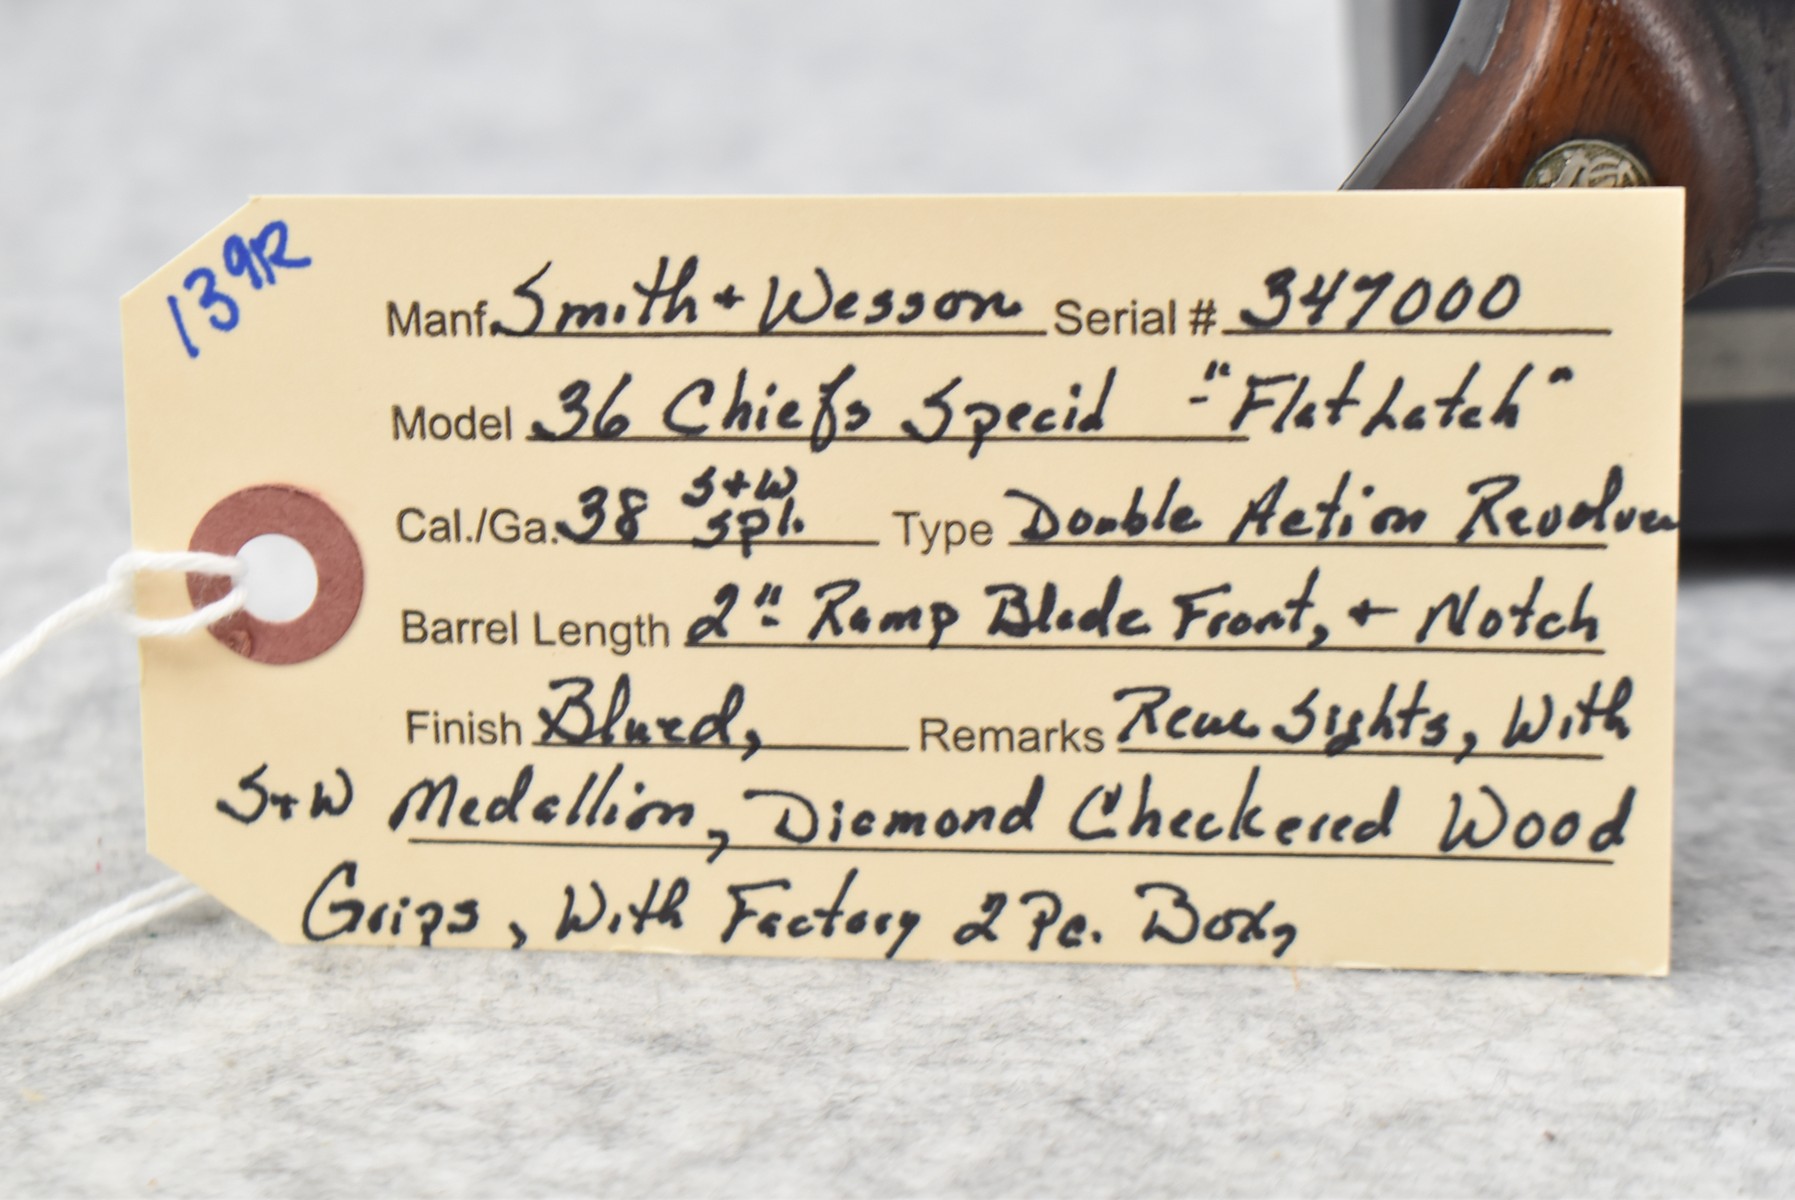 139R
Manf. Smith + Wesson Serial # 347000
Model 36 Chiefs Special - "Flat Latch"
Cal./Ga. 38 S+W Spl. Type Double Action Revolver
Barrel Length 2" Ramp Blade Front, + Notch
Finish Blued, Remarks Rear Sights, With
S+W Medallion, Diamond Checkered Wood
Grips, With Factory 2 Pc. Box,